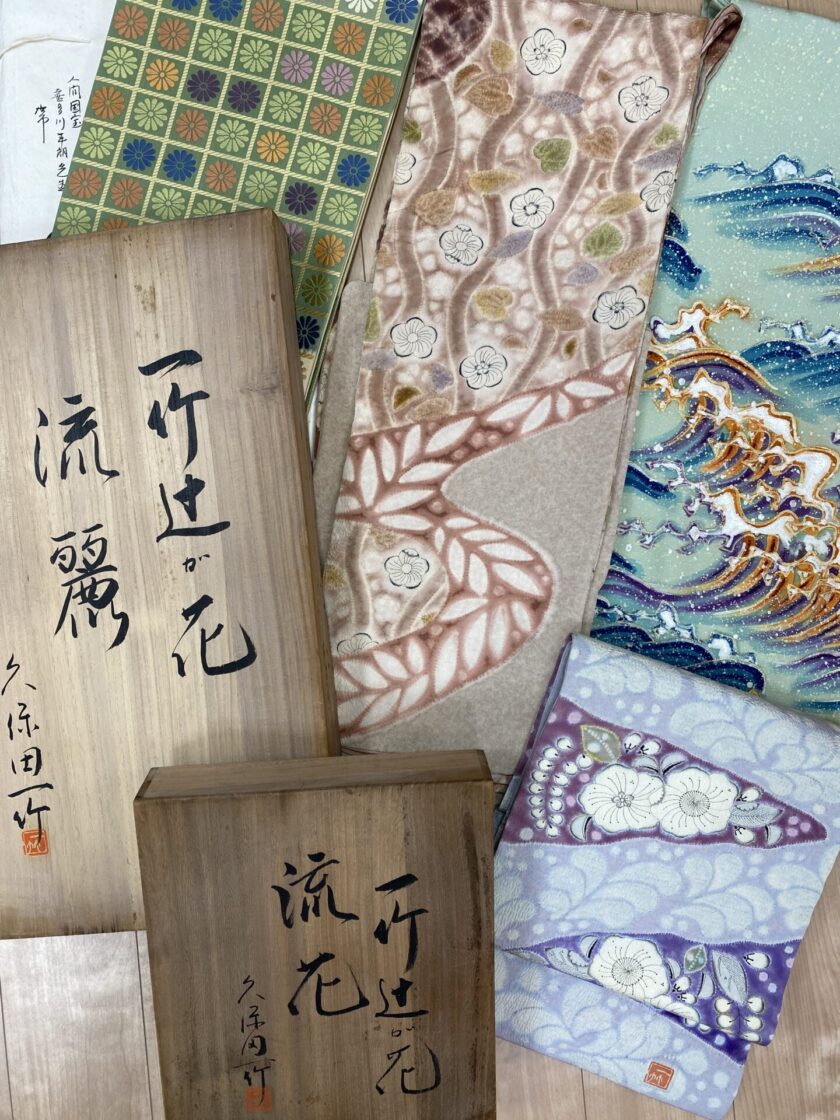 人間国宝
喜多川平朗
帯
一竹辻が花
流麗
久保田一竹
一竹辻が花
流花
久保田一竹